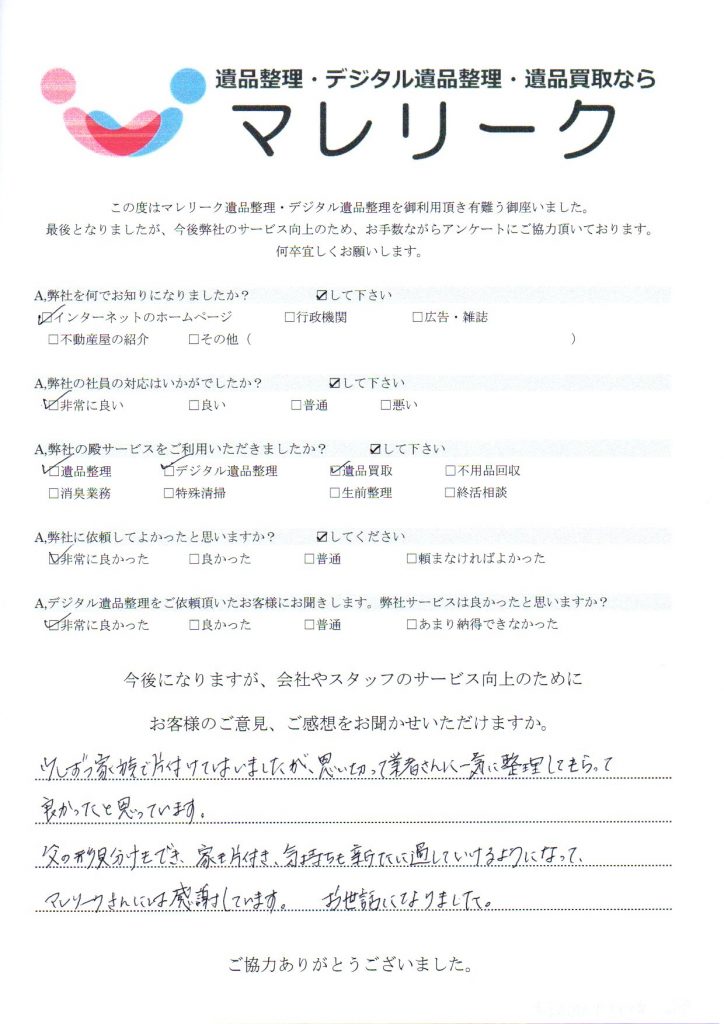 遺品整理・デジタル遺品整理・遺品買取なら
マレリーク
この度はマレリーク遺品整理・デジタル遺品整理を御利用頂き有難う御座いました。
最後となりましたが、今後弊社のサービス向上のため、お手数ながらアンケートにご協力頂いております。
何卒宜しくお願いします。
A,弊社を何でお知りになりましたか？ ☑して下さい
☑インターネットのホームページ □行政機関 □広告・雑誌
□不動産屋の紹介 □その他（ ）
A,弊社の社員の対応はいかがでしたか？ ☑して下さい
☑非常に良い □良い □普通 □悪い
A,弊社の殿サービスをご利用いただきましたか？ ☑して下さい
☑遺品整理 ☑デジタル遺品整理 ☑遺品買取 □不用品回収
□消臭業務 □特殊清掃 □生前整理 □終活相談
A,弊社に依頼してよかったと思いますか？ ☑してください
☑非常に良かった □良かった □普通 □頼まなければよかった
A,デジタル遺品整理をご依頼頂いたお客様にお聞きします。弊社サービスは良かったと思いますか？
☑非常に良かった □良かった □普通 □あまり納得できなかった
今後になりますが、会社やスタッフのサービス向上のために
お客様のご意見、ご感想をお聞かせいただけますか。
少しずつ家族で片付けてはいましたが、思い切って業者さんに一気に整理してもらって
良かったと思っています。
父の形見分けもでき、家も片付き、気持ちも新たに過していけるようになって、
マレリークさんには感謝しています。 お世話になりました。
ご協力ありがとうございました。